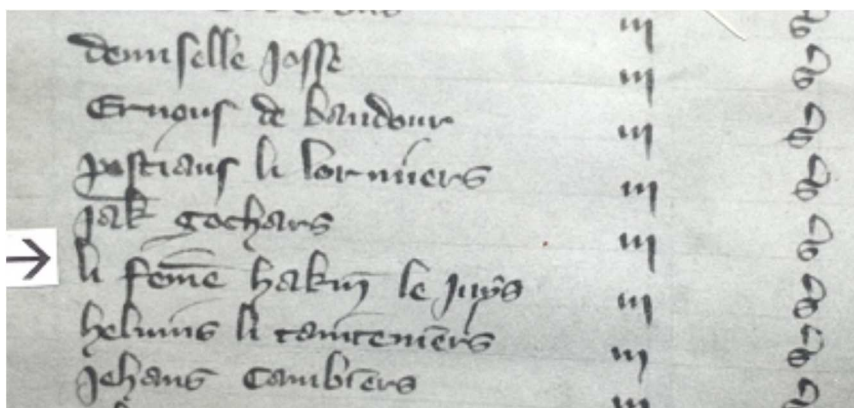 demiselle Josse iij d
Ernous de baudour iij d
postiaus li lormiers iij d
Jak Cochars iij d
li feme hakin le Juys iij d
helmins li cainteniers iij d
Jehans Cambiers iij d